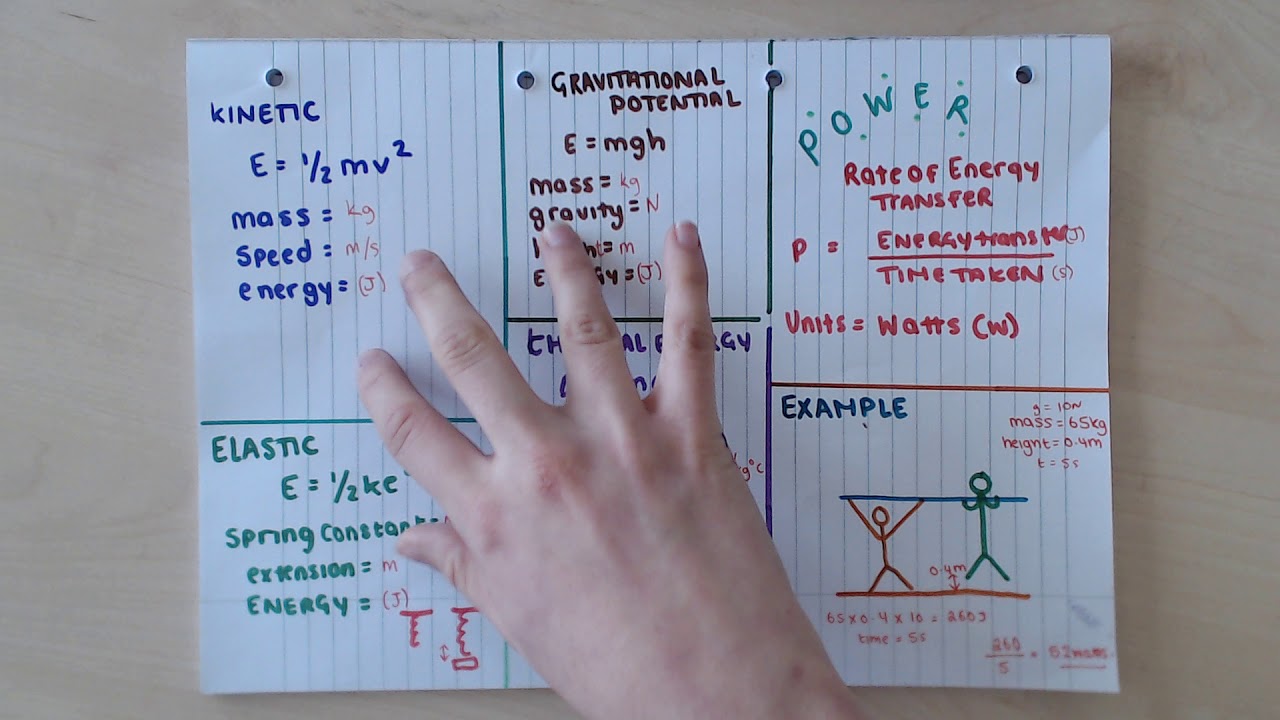 KINETIC
E = ½ mv²
mass = kg
speed = m/s
energy = (J)
GRAVITATIONAL
POTENTIAL
E = mgh
mass = kg
gravity = N
= m
= (J)
POWER
Rate of Energy
TRANSFER
P = ENERGY transfer (J)
TIME TAKEN (s)
Units = Watts (W)
ELASTIC
E = ½ ke
Spring Constant
extension = m
ENERGY = (J)
EXAMPLE
g = 10N
mass = 65kg
height = 0.4m
t = 5s
0.4m
65 x 0.4 x 10 = 260J
time = 5s
260
5
=